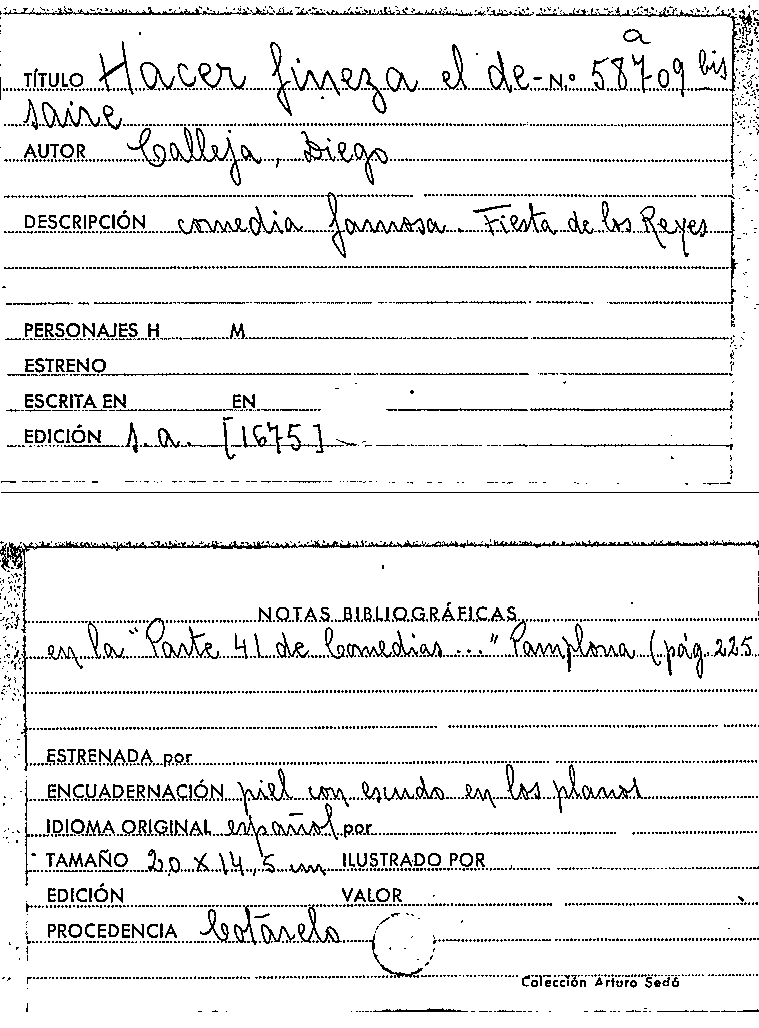 a
TÍTULO Hacer fineza el de- N.º 58709 bis
saire
AUTOR Calleja, Diego
DESCRIPCIÓN comedia famosa. Fiesta de los Reyes
PERSONAJES H M
ESTRENO
ESCRITA EN EN
EDICIÓN s.a. [1675]
NOTAS BIBLIOGRÁFICAS
en la "Parte 41 de Comedias..." Pamplona (pág. 225
ESTRENADA por
ENCUADERNACIÓN piel con escudo en los planos
IDIOMA ORIGINAL español por
TAMAÑO 20 X 14,5 cm ILUSTRADO POR
EDICIÓN VALOR
PROCEDENCIA Cotarelo
Colección Arturo Sedó